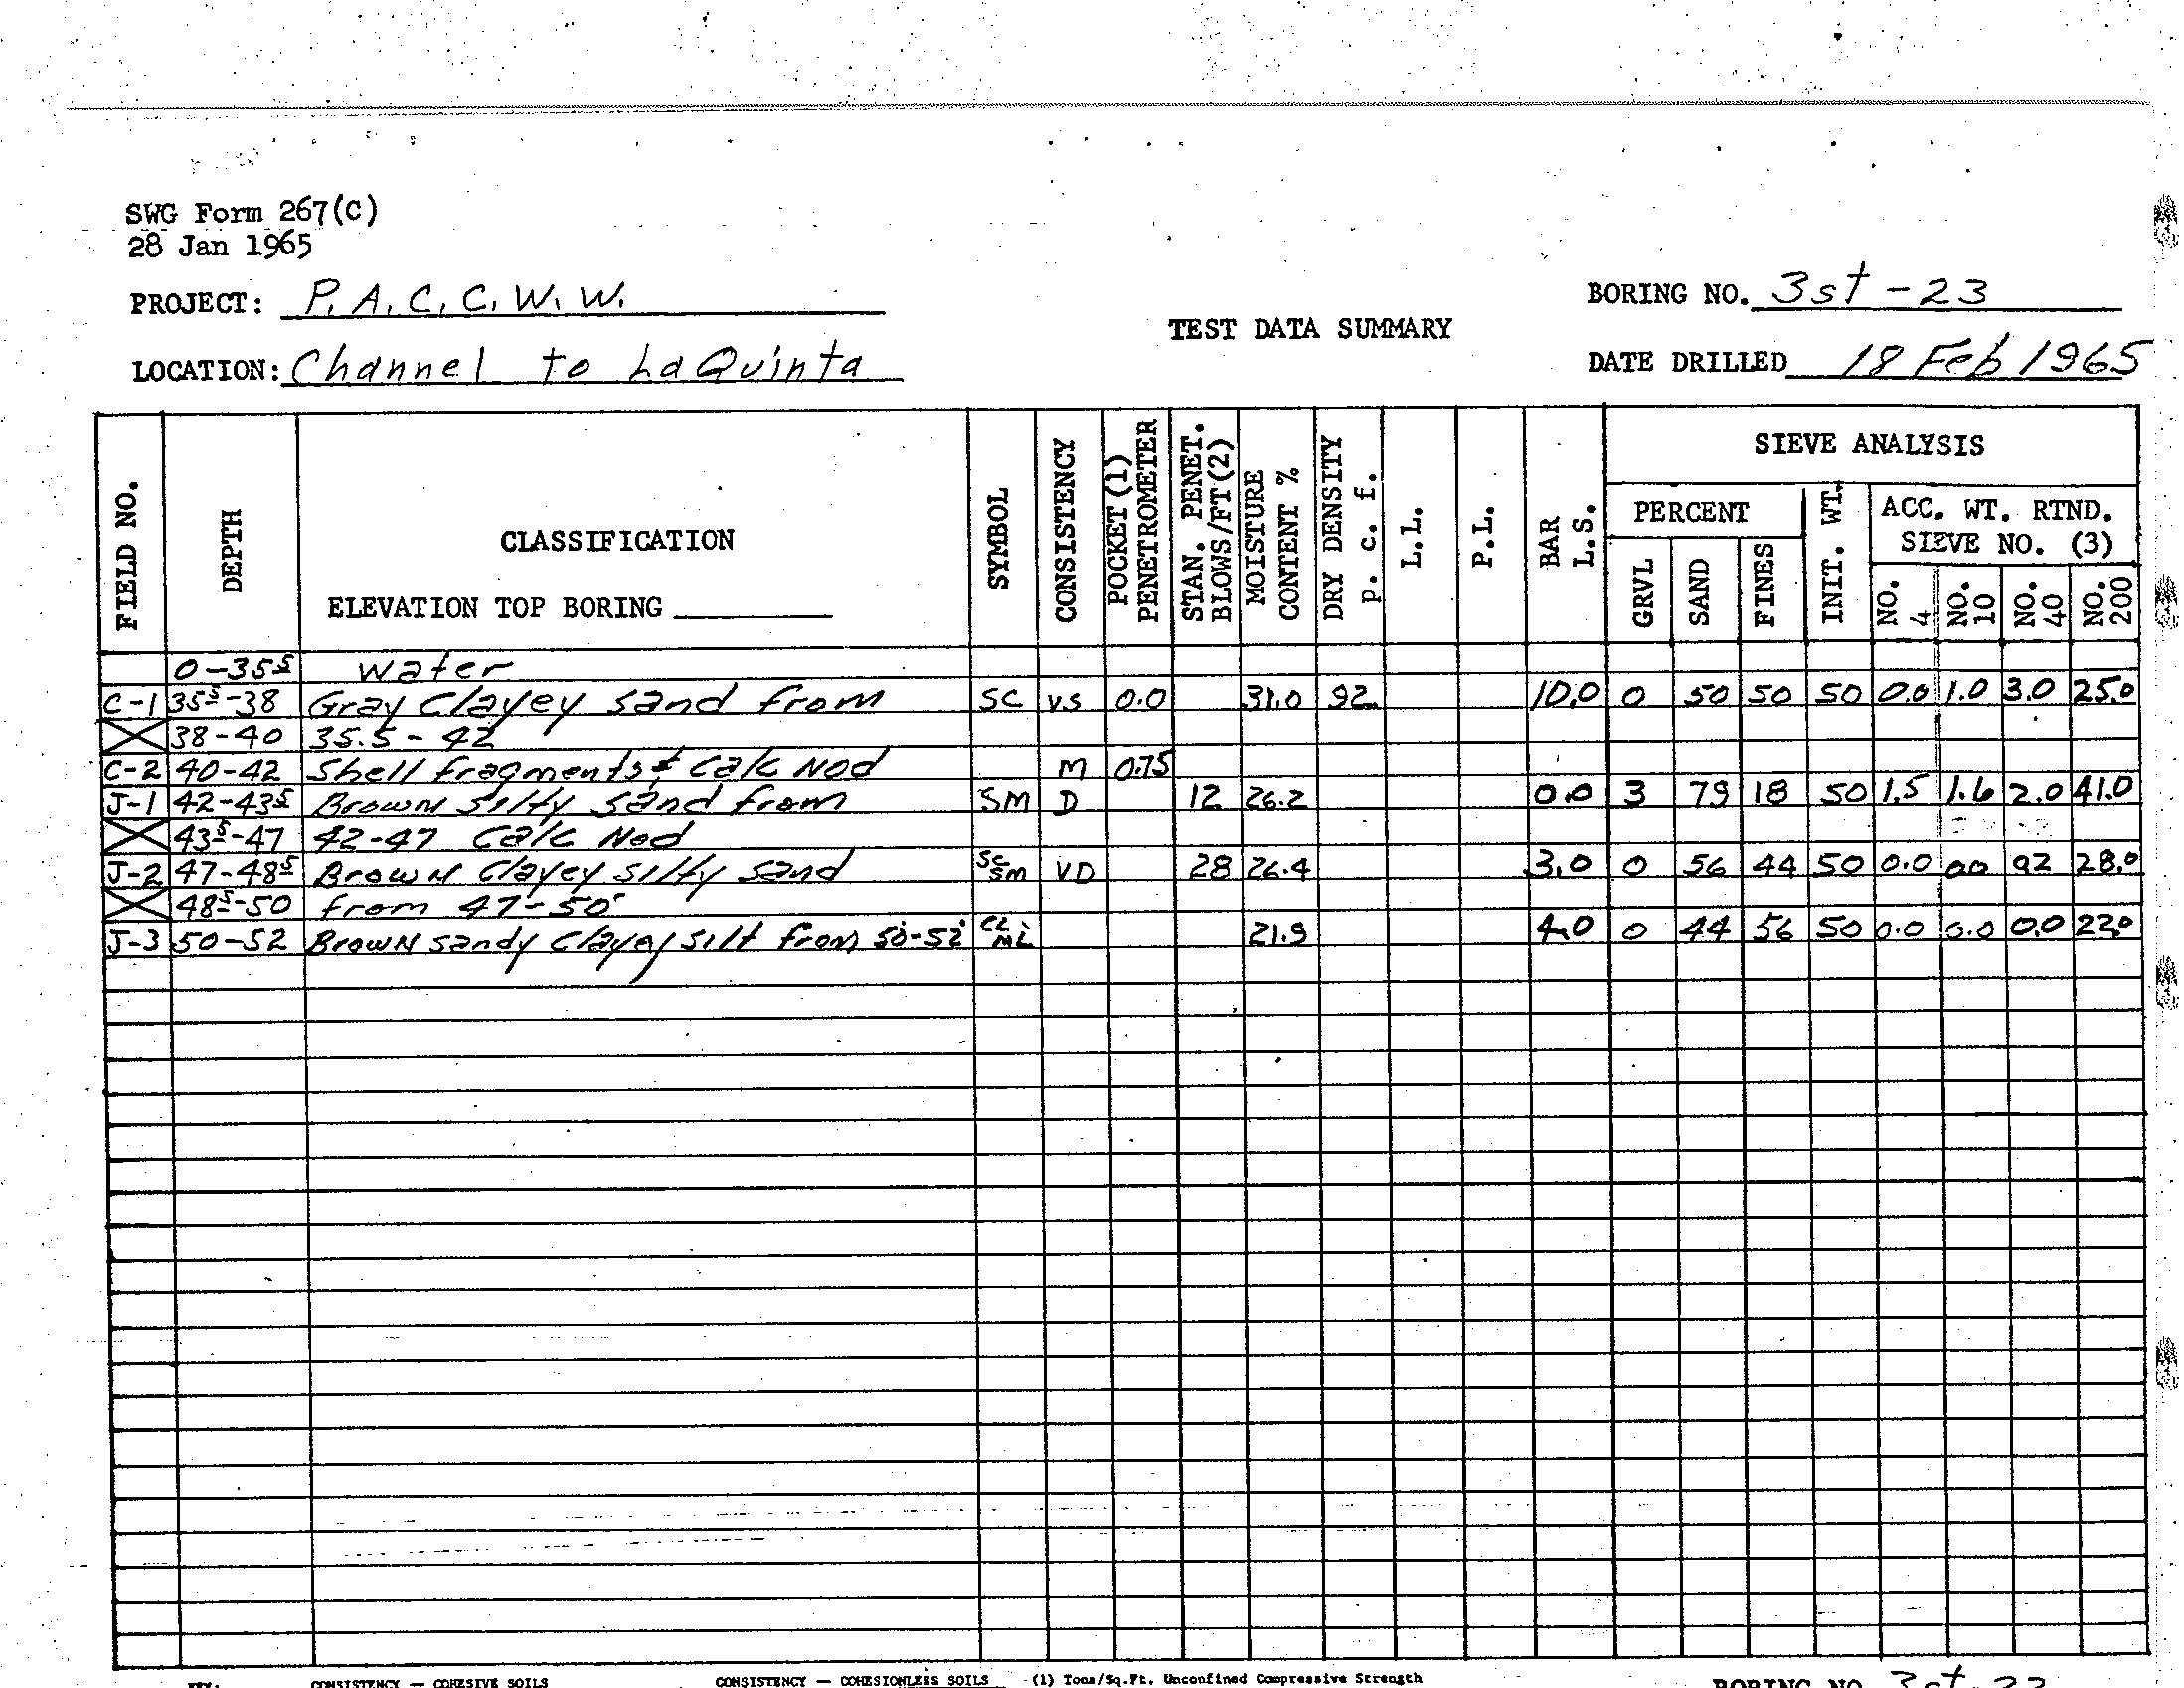 SWG Form 267(C)
28 Jan 1965
PROJECT: P.A.C.C.W.W.
BORING NO. 3st-23
TEST DATA SUMMARY
LOCATION: Channel to LaQuinta
DATE DRILLED 18 Feb 1965
FIELD NO. DEPTH CLASSIFICATION SYMBOL CONSISTENCY POCKET (1) PENETROMETER STAN. PENET. BLOWS/FT(2) MOISTURE CONTENT % DRY DENSITY p. c. f. L.L. P.L. BAR L.S. SIEVE ANALYSIS
PERCENT INIT. WT. ACC. WT. RTND. SIEVE NO. (3)
ELEVATION TOP BORING
GRVL SAND FINES NO. 4 NO. 10 NO. 40 NO. 200
0-355 Water
C-1 355-38 Gray Clayey sand from SC VS 0.0 31.0 92 10.0 0 50 50 50 0.0 1.0 3.0 25.0
38-40 35.5-42
C-2 40-42 Shell fragments & Calc Nod M 0.75
J-1 42-435 Brown silty sand from SM D 12 26.2 0.0 3 79 18 50 1.5 1.6 2.0 41.0
435-47 42-47 Calc Nod
J-2 47-485 Brown Clayey silty sand SC SM VD 28 26.4 3.0 0 56 44 50 0.0 0.0 28.0
485-50 from 47-50
J-3 50-52 Brown sandy Clayey silt from 50-52 CL ML 21.9 4.0 0 44 56 50 0.0 0.0 0.0 22.0
CONSISTENCY — COHESIVE SOILS CONSISTENCY — COHESIONLESS SOILS (1) Tons/Sq.Ft. Unconfined Compressive Strength
BORING NO. 3st-23